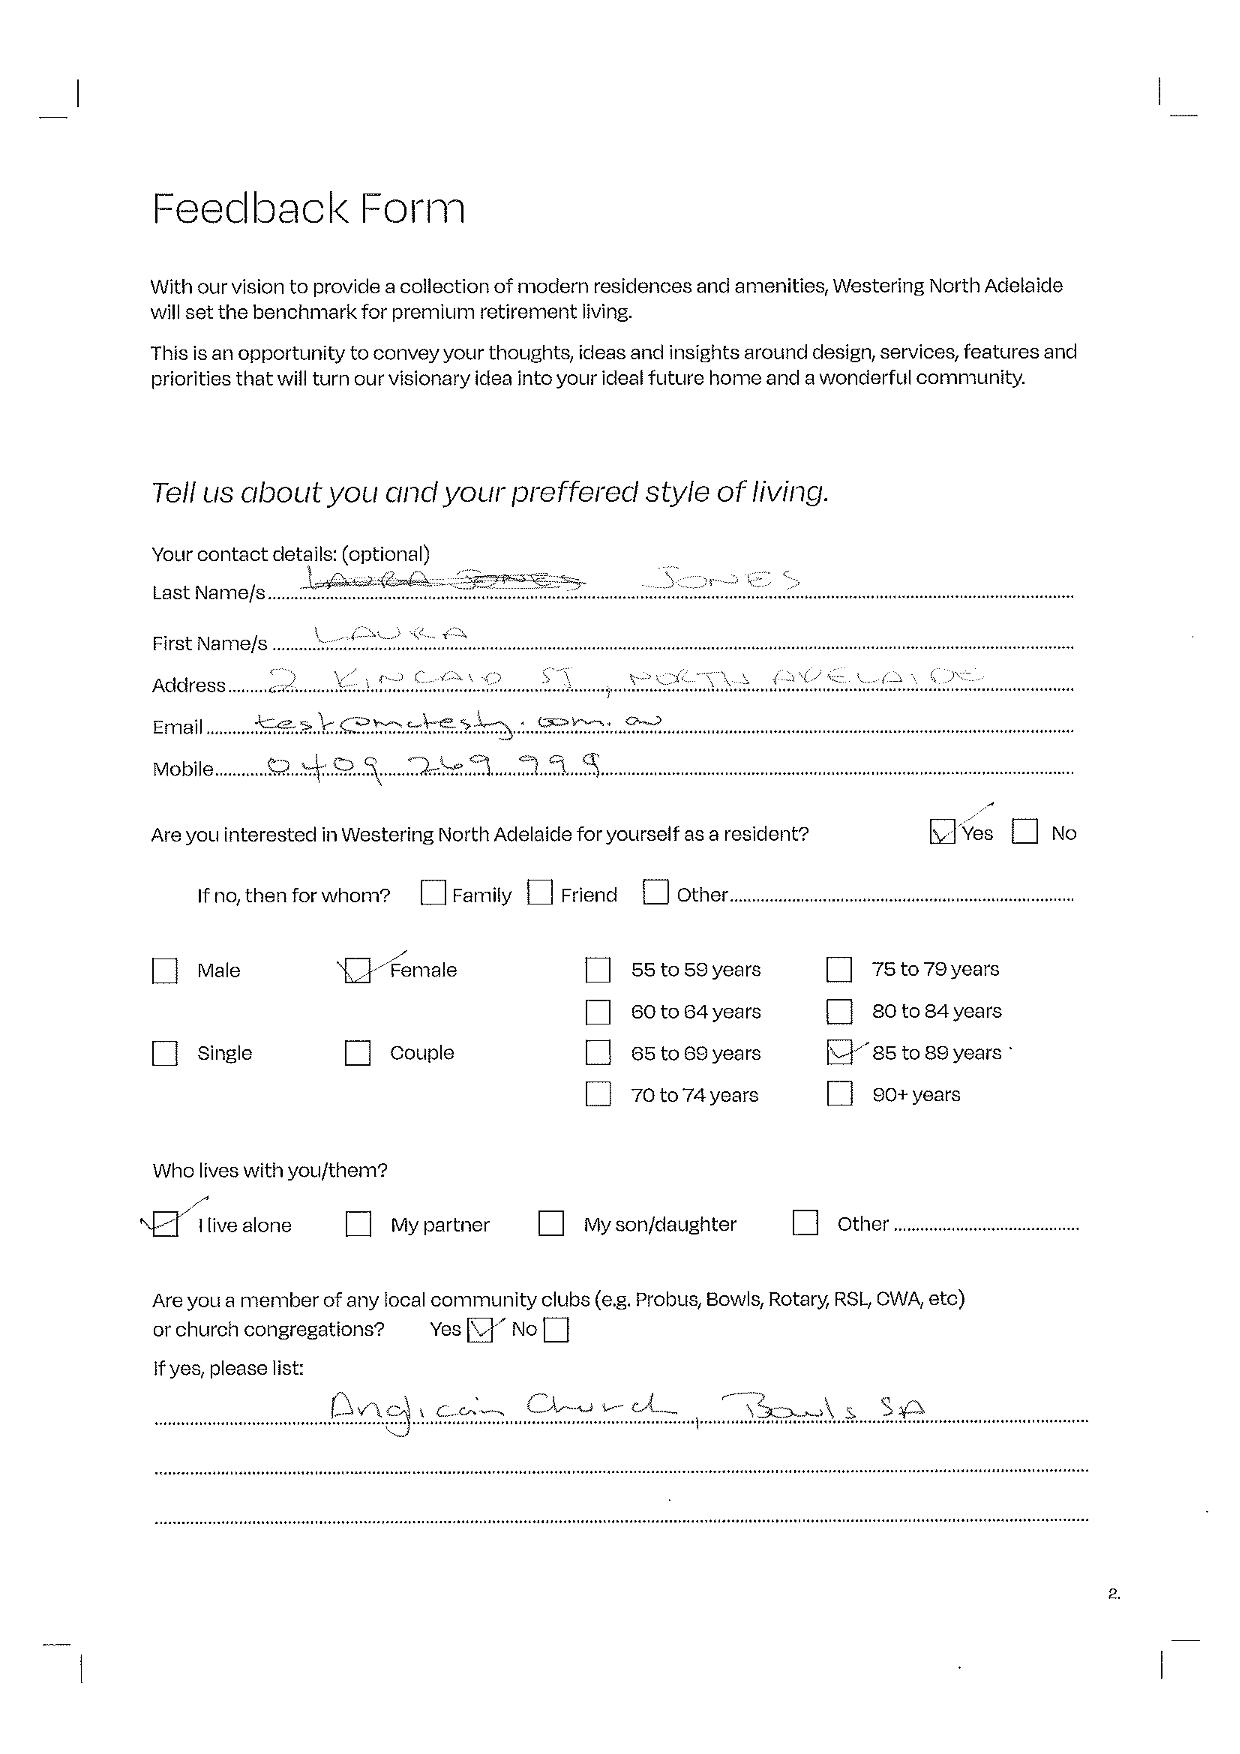 Feedback Form
With our vision to provide a collection of modern residences and amenities, Westering North Adelaide
will set the benchmark for premium retirement living.
This is an opportunity to convey your thoughts, ideas and insights around design, services, features and
priorities that will turn our visionary idea into your ideal future home and a wonderful community.
Tell us about you and your preffered style of living.
Your contact details: (optional)
Last Name/s LAURA JONES JONES
First Name/s LAURA
Address 2 KINCAID ST, NORTH ADELAIDE
Email
Mobile 0409 269 999
Are you interested in Westering North Adelaide for yourself as a resident? Yes No
If no, then for whom? Family Friend Other
Male Female 55 to 59 years 75 to 79 years
60 to 64 years 80 to 84 years
Single Couple 65 to 69 years 85 to 89 years
70 to 74 years 90+ years
Who lives with you/them?
I live alone My partner My son/daughter Other
Are you a member of any local community clubs (e.g. Probus, Bowls, Rotary, RSL, CWA, etc)
or church congregations? Yes No
If yes, please list:
Anglican Church, Bowls SA
2.